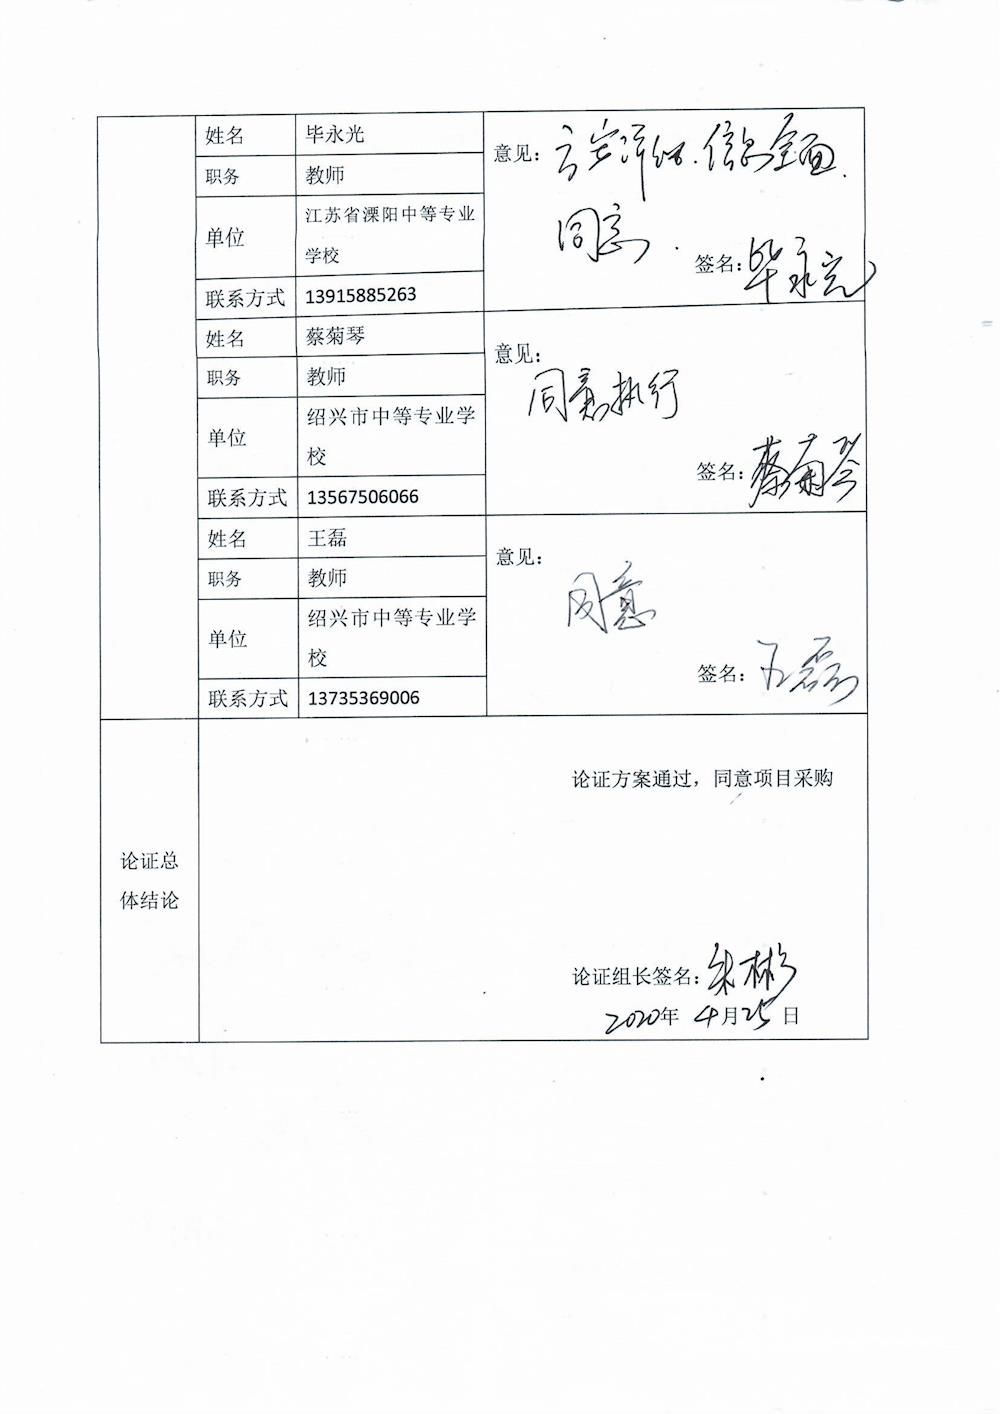 姓名 毕永光
意见：方案详细.信息全面.
职务 教师
单位 江苏省溧阳中等专业
学校
同意.
签名：毕永光
联系方式 13915885263
姓名 蔡菊琴
意见：
职务 教师
同意执行
单位 绍兴市中等专业学
校
签名：蔡菊琴
联系方式 13567506066
姓名 王磊
意见：
职务 教师
同意
单位 绍兴市中等专业学
校
签名：王磊
联系方式 13735369006
论证方案通过，同意项目采购
论证总
体结论
论证组长签名：朱彬
2020年 4月25日